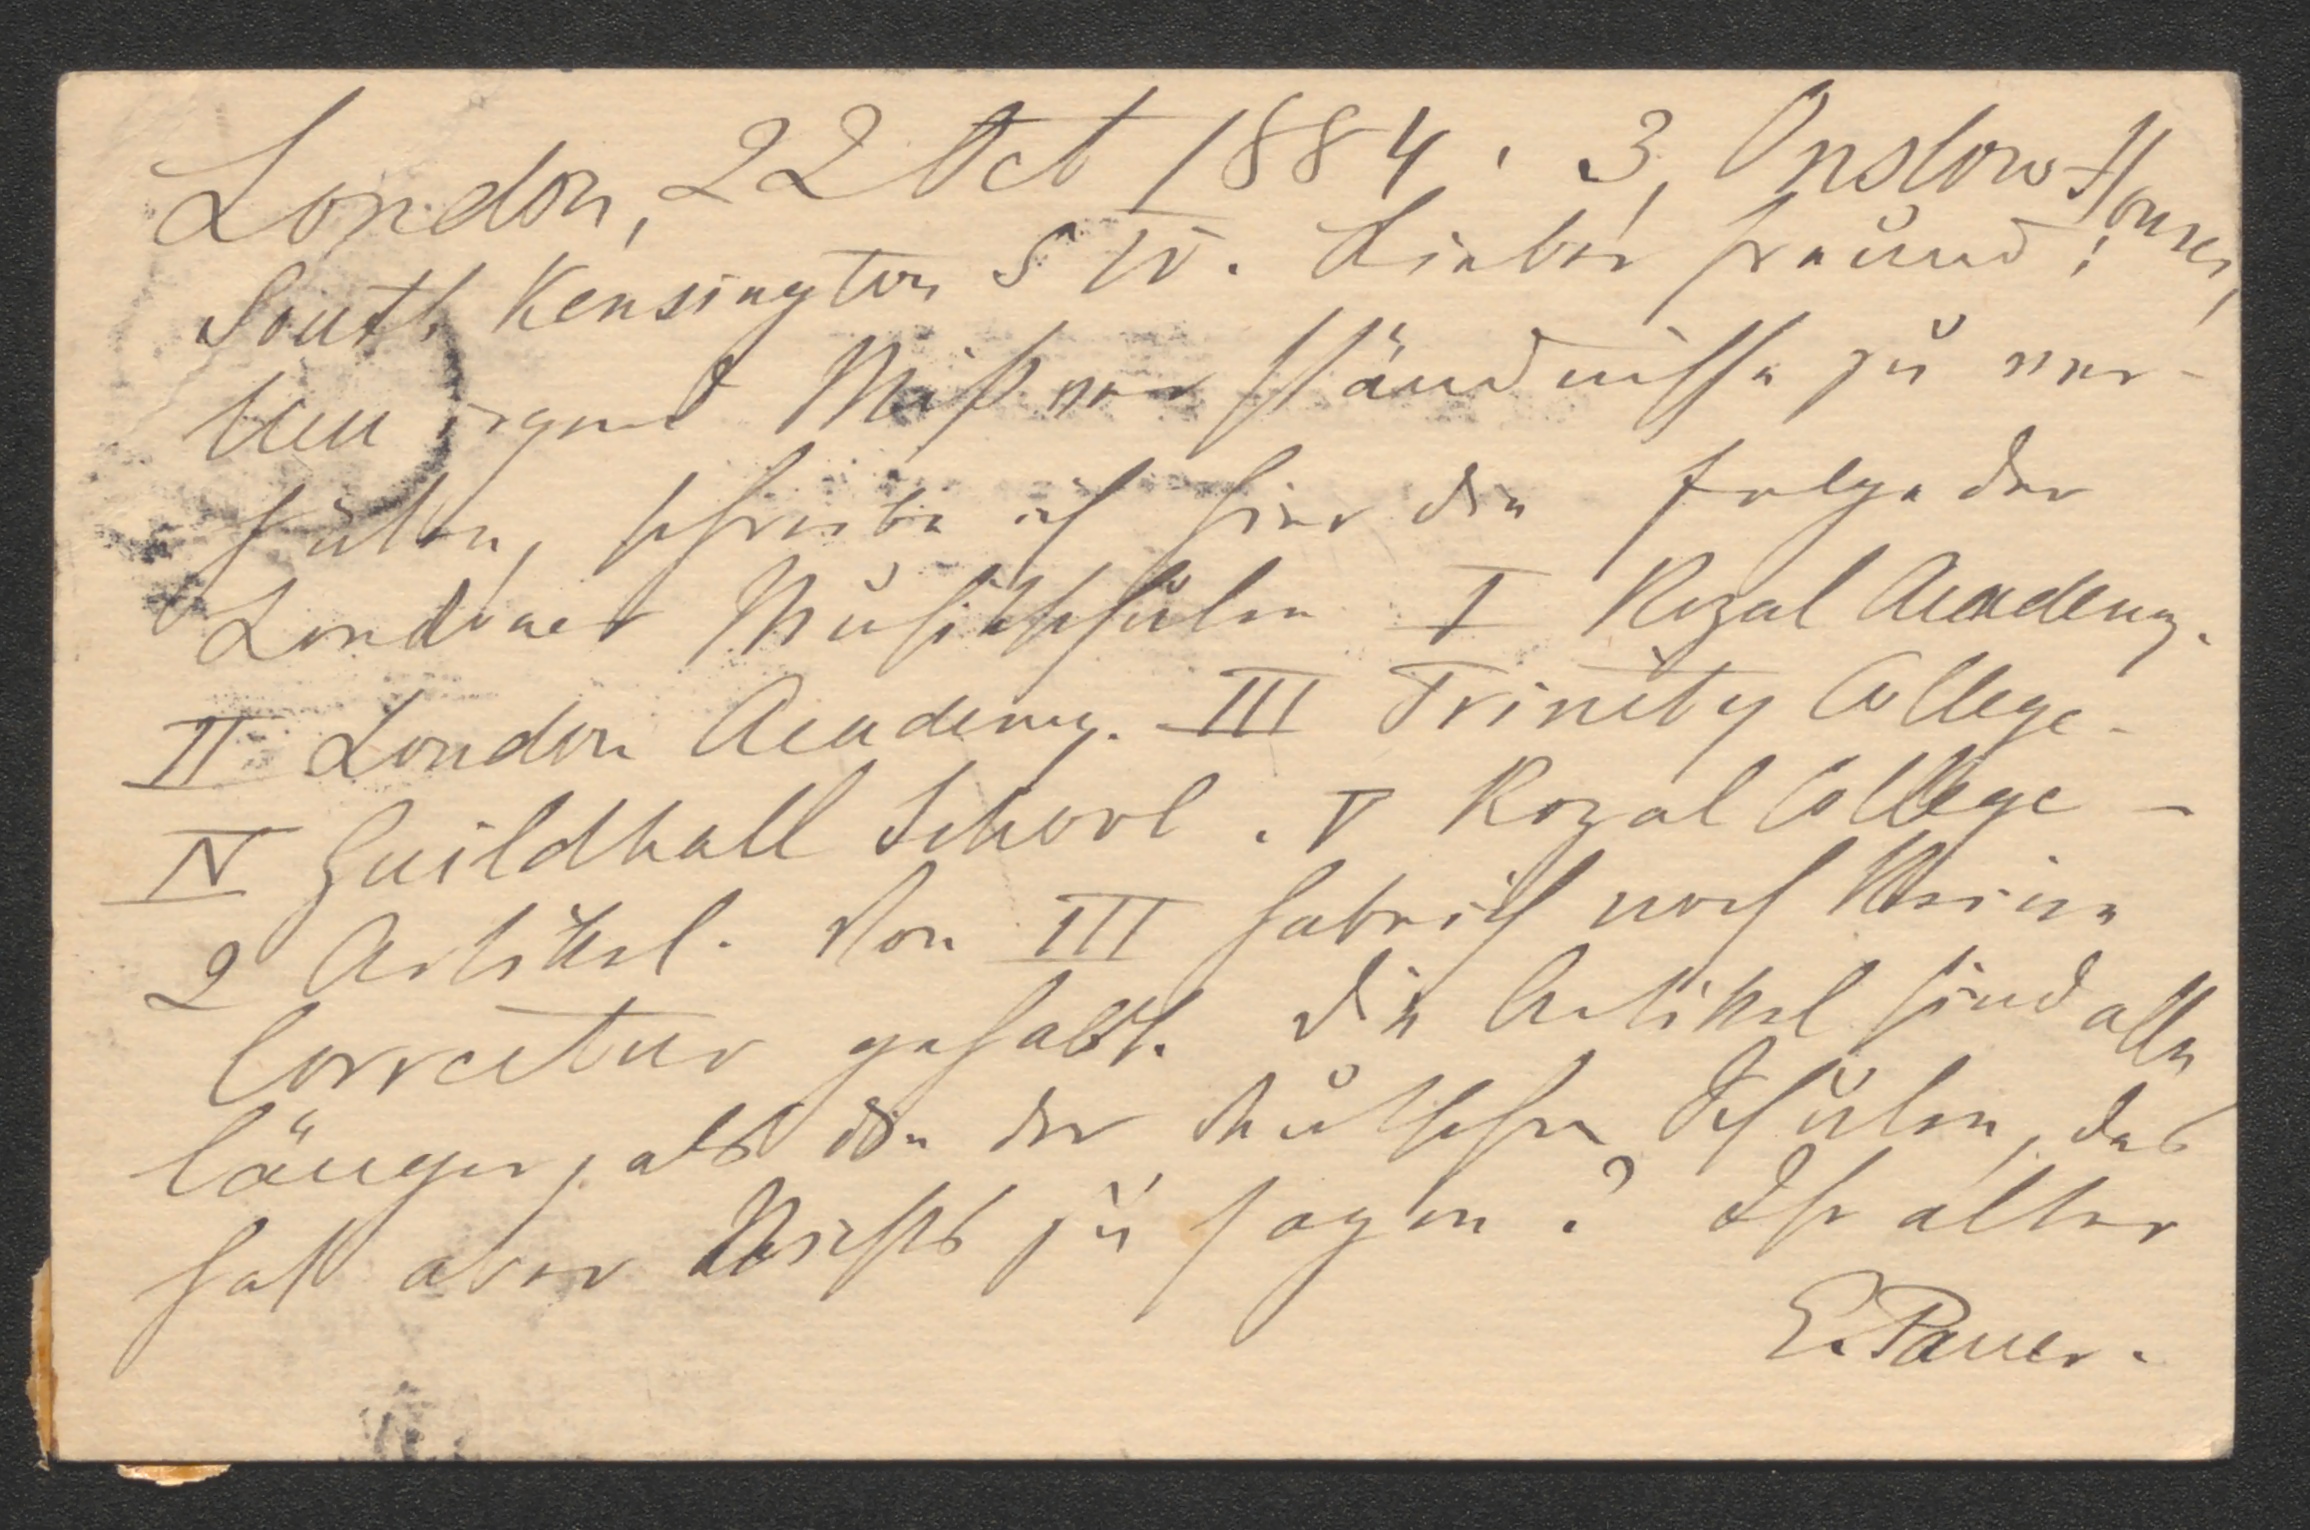 London, 22 Oct 1884. 3, Onslow Houses,
South Kensington S W. Lieber Freund!
Um irgend Mißverständnisse zu ver-
hüten, schreibe ich hier die Folge der
Londoner Musikschulen I Royal Academy.
II London Academy. III Trinity College.
IV Guildhall School. V Royal College –
2 Artikel. Von III habe ich noch Keine
Correctur gehabt. Die Artikel sind alle
länger, als die der deutschen Schulen, das
hat aber Nichts zu sagen? Ihr alter
E. Pauer.